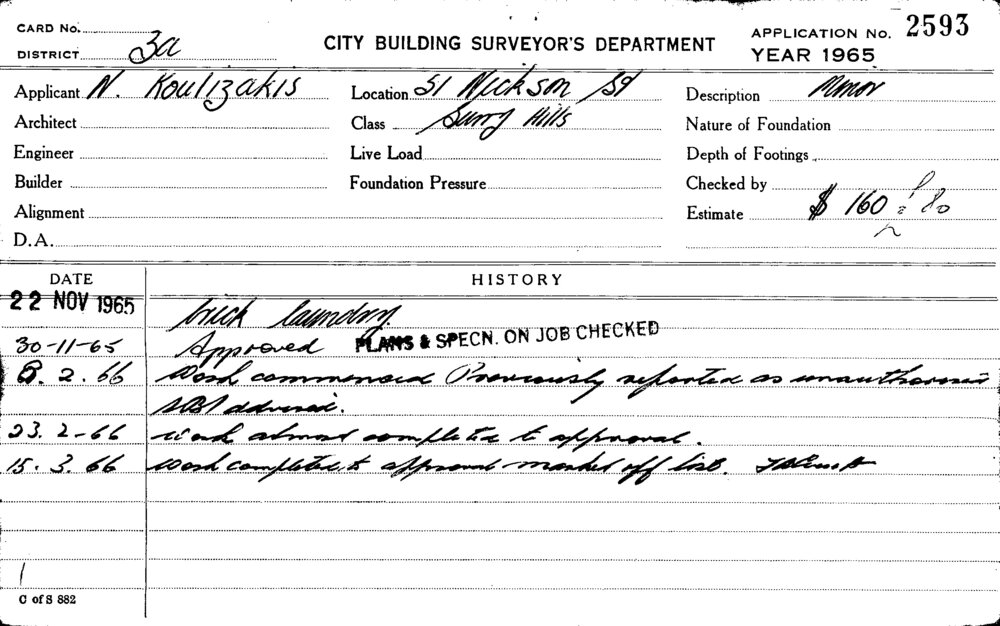 CARD No.
DISTRICT 3a
CITY BUILDING SURVEYOR'S DEPARTMENT
APPLICATION No. 2593
YEAR 1965
Applicant N. Koulizakis
Location 51 Nickson St
Description Minor
Architect
Class Surry Hills
Nature of Foundation
Engineer
Live Load
Depth of Footings
Builder
Foundation Pressure
Checked by
Alignment
Estimate $ 160 : 80
D.A.
DATE HISTORY
22 NOV 1965 brick laundry
30-11-65 Approved PLANS & SPECN. ON JOB CHECKED
8. 2. 66 Work commenced Previously reported as unauthorised
SBI advised.
23. 2-66 Work almost completed to approval.
15. 3. 66 Work completed to approval marked off list.
C of S 882